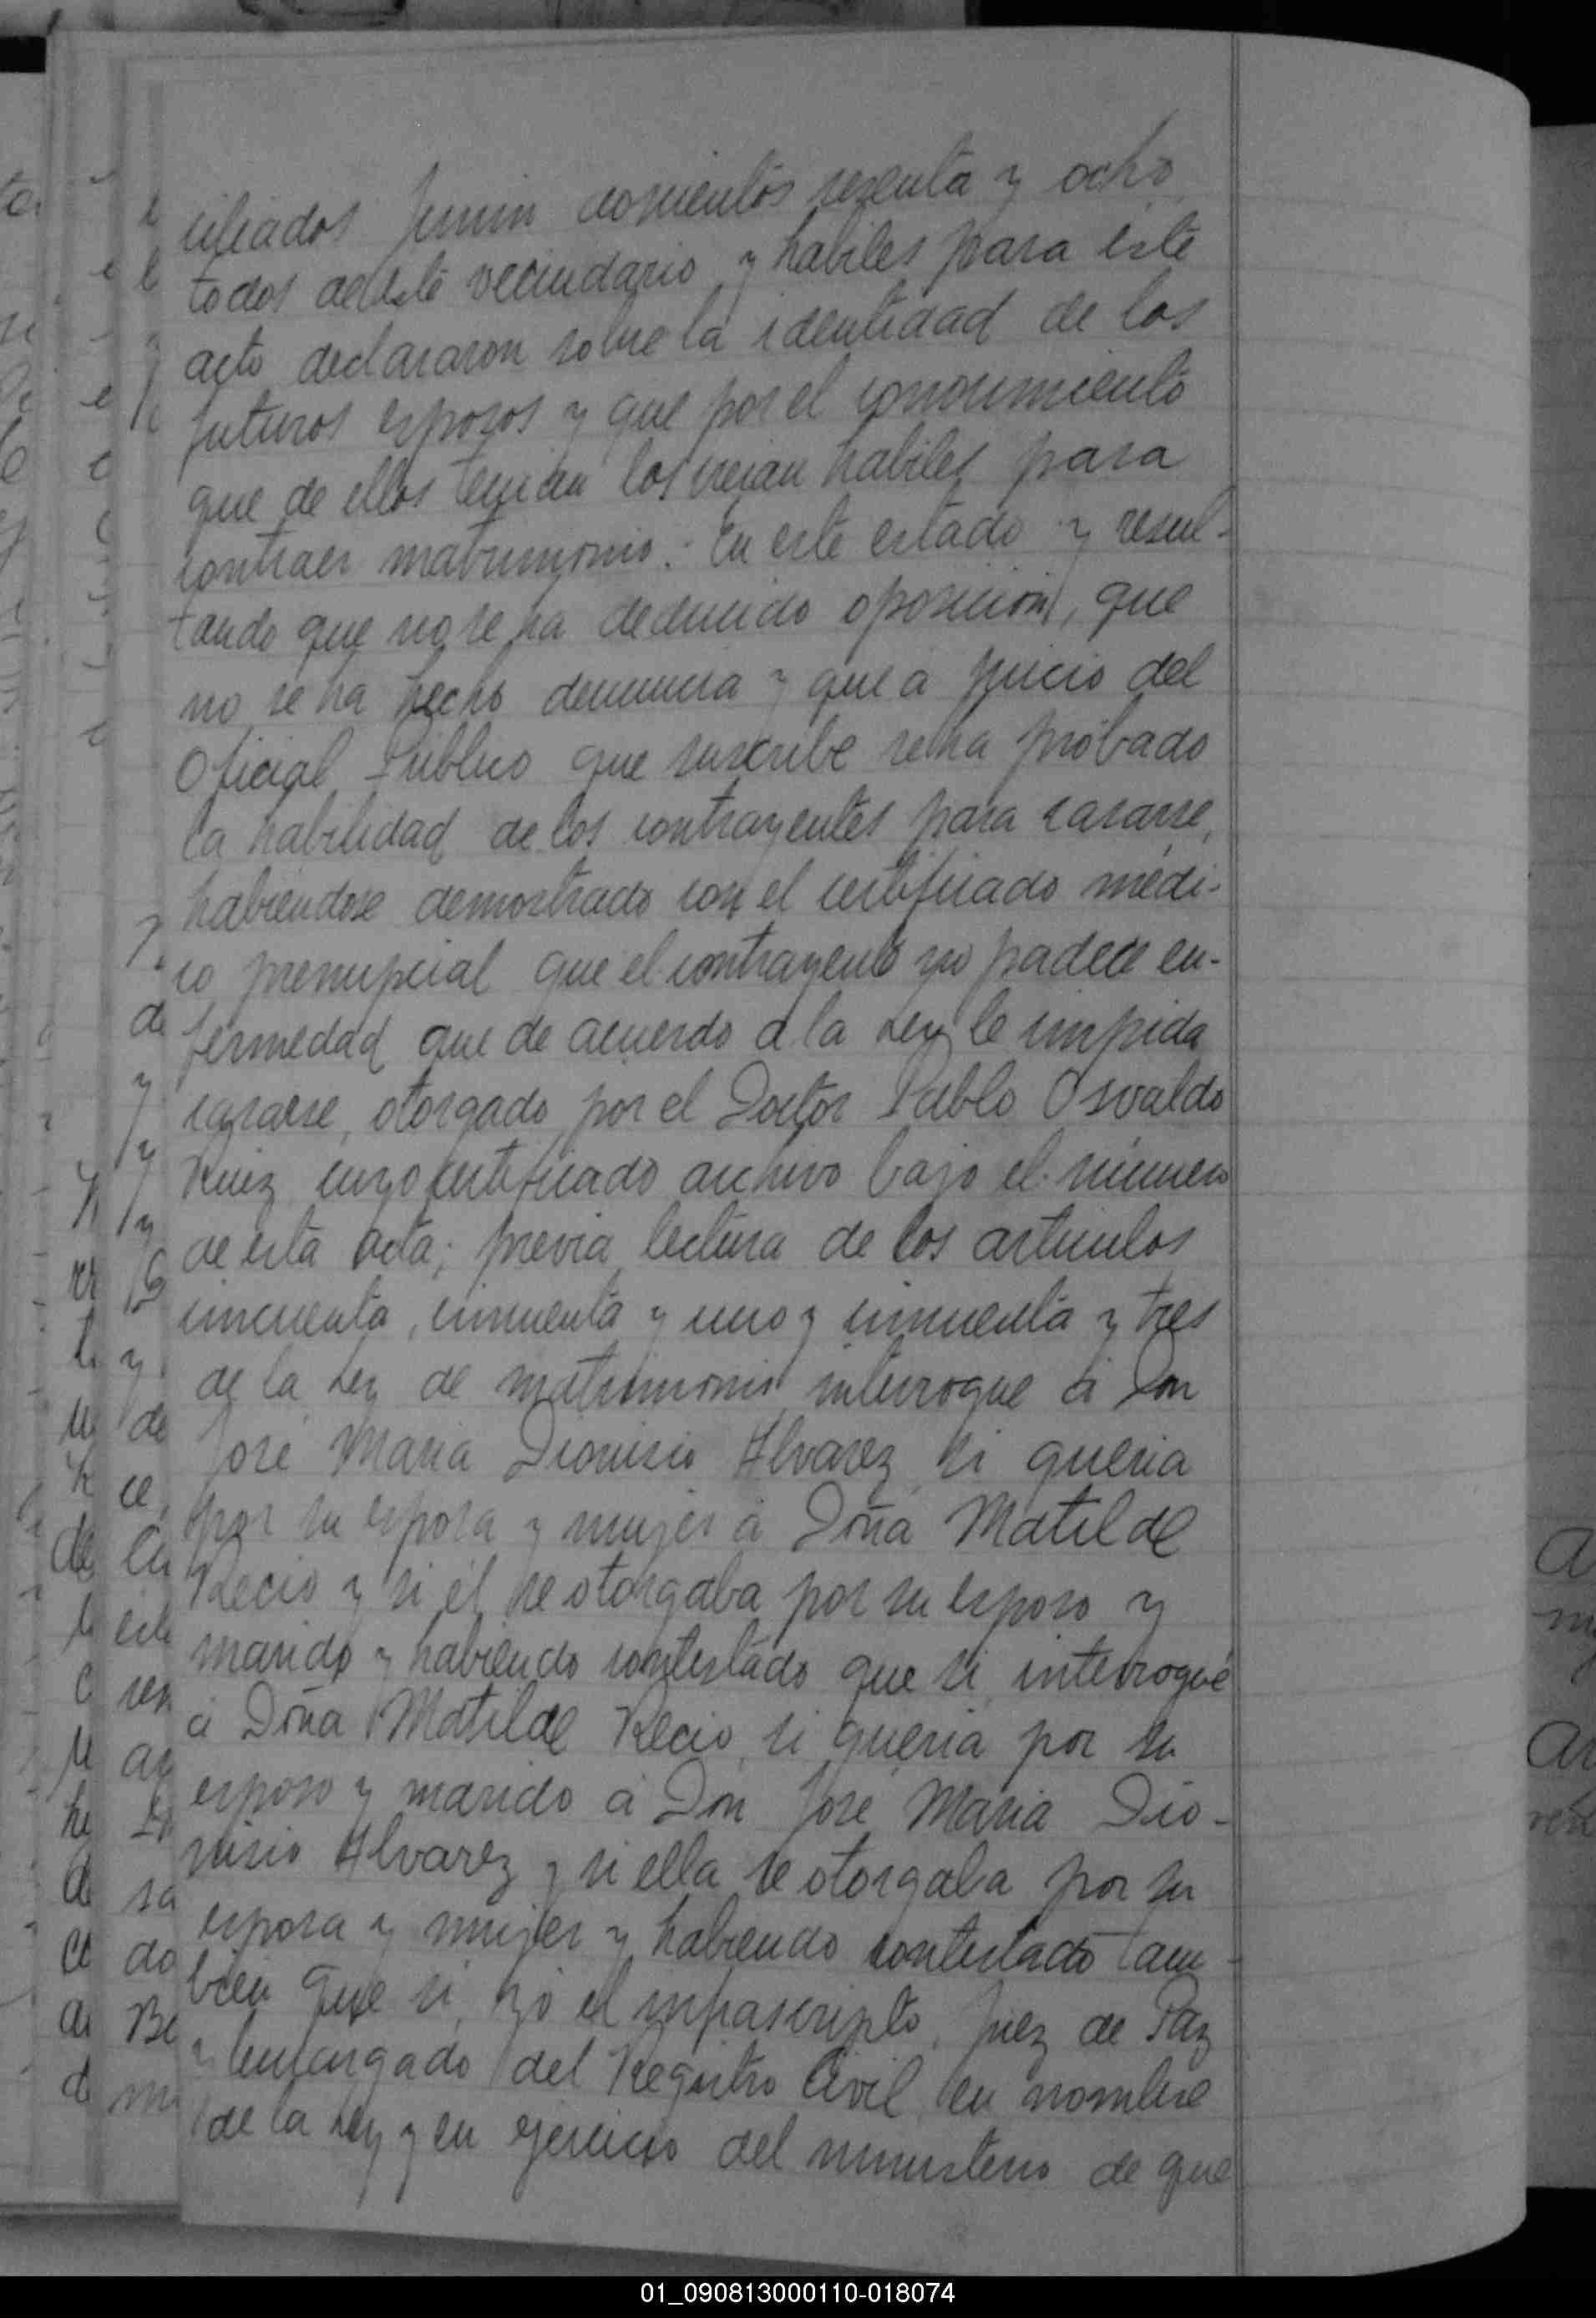 ciliados Junin doscientos sesenta y ocho
todos de este vecindario y habiles para este
acto declararon sobre la identidad de los
futuros esposos y que por el conocimiento
que de ellos tenian los creian habiles para
contraer matrimonio.- En este estado y resul-
tando que no se ha deducido oposicion, que
no se ha hecho denuncia y que a juicio del
Oficial Publico que suscribe se ha probado
la habilidad de los contrayentes para casarse,
habiendose demostrado con el certificado médi-
co prenupcial que el contrayente no padece en-
fermedad que de acuerdo a la Ley le impida
casarse, otorgado por el Doctor Pablo Osvaldo
Ruiz cuyo certificado archivo bajo el número
de esta acta; previa lectura de los articulos
cincuenta, cincuenta y uno y cincuenta y tres
de la Ley de matrimonio interrogue á Don
José Maria Dionisio Alvarez si queria
por su esposa y mujer á Doña Matilde
Recio y si él se otorgaba por su esposo y
marido y habiendo contestado que si, interrogué
á Doña Matilde Recio si queria por su
esposo y marido á Don José Maria Dio-
nisio Alvarez y si ella se otorgaba por su
esposa y mujer y habiendo contestado tam-
bien que si, yo el infrascripto, Juez de Paz
y Encargado del Registro Civil en nombre
de la Ley y en ejercicio del ministerio de que
01_090813000110-018074